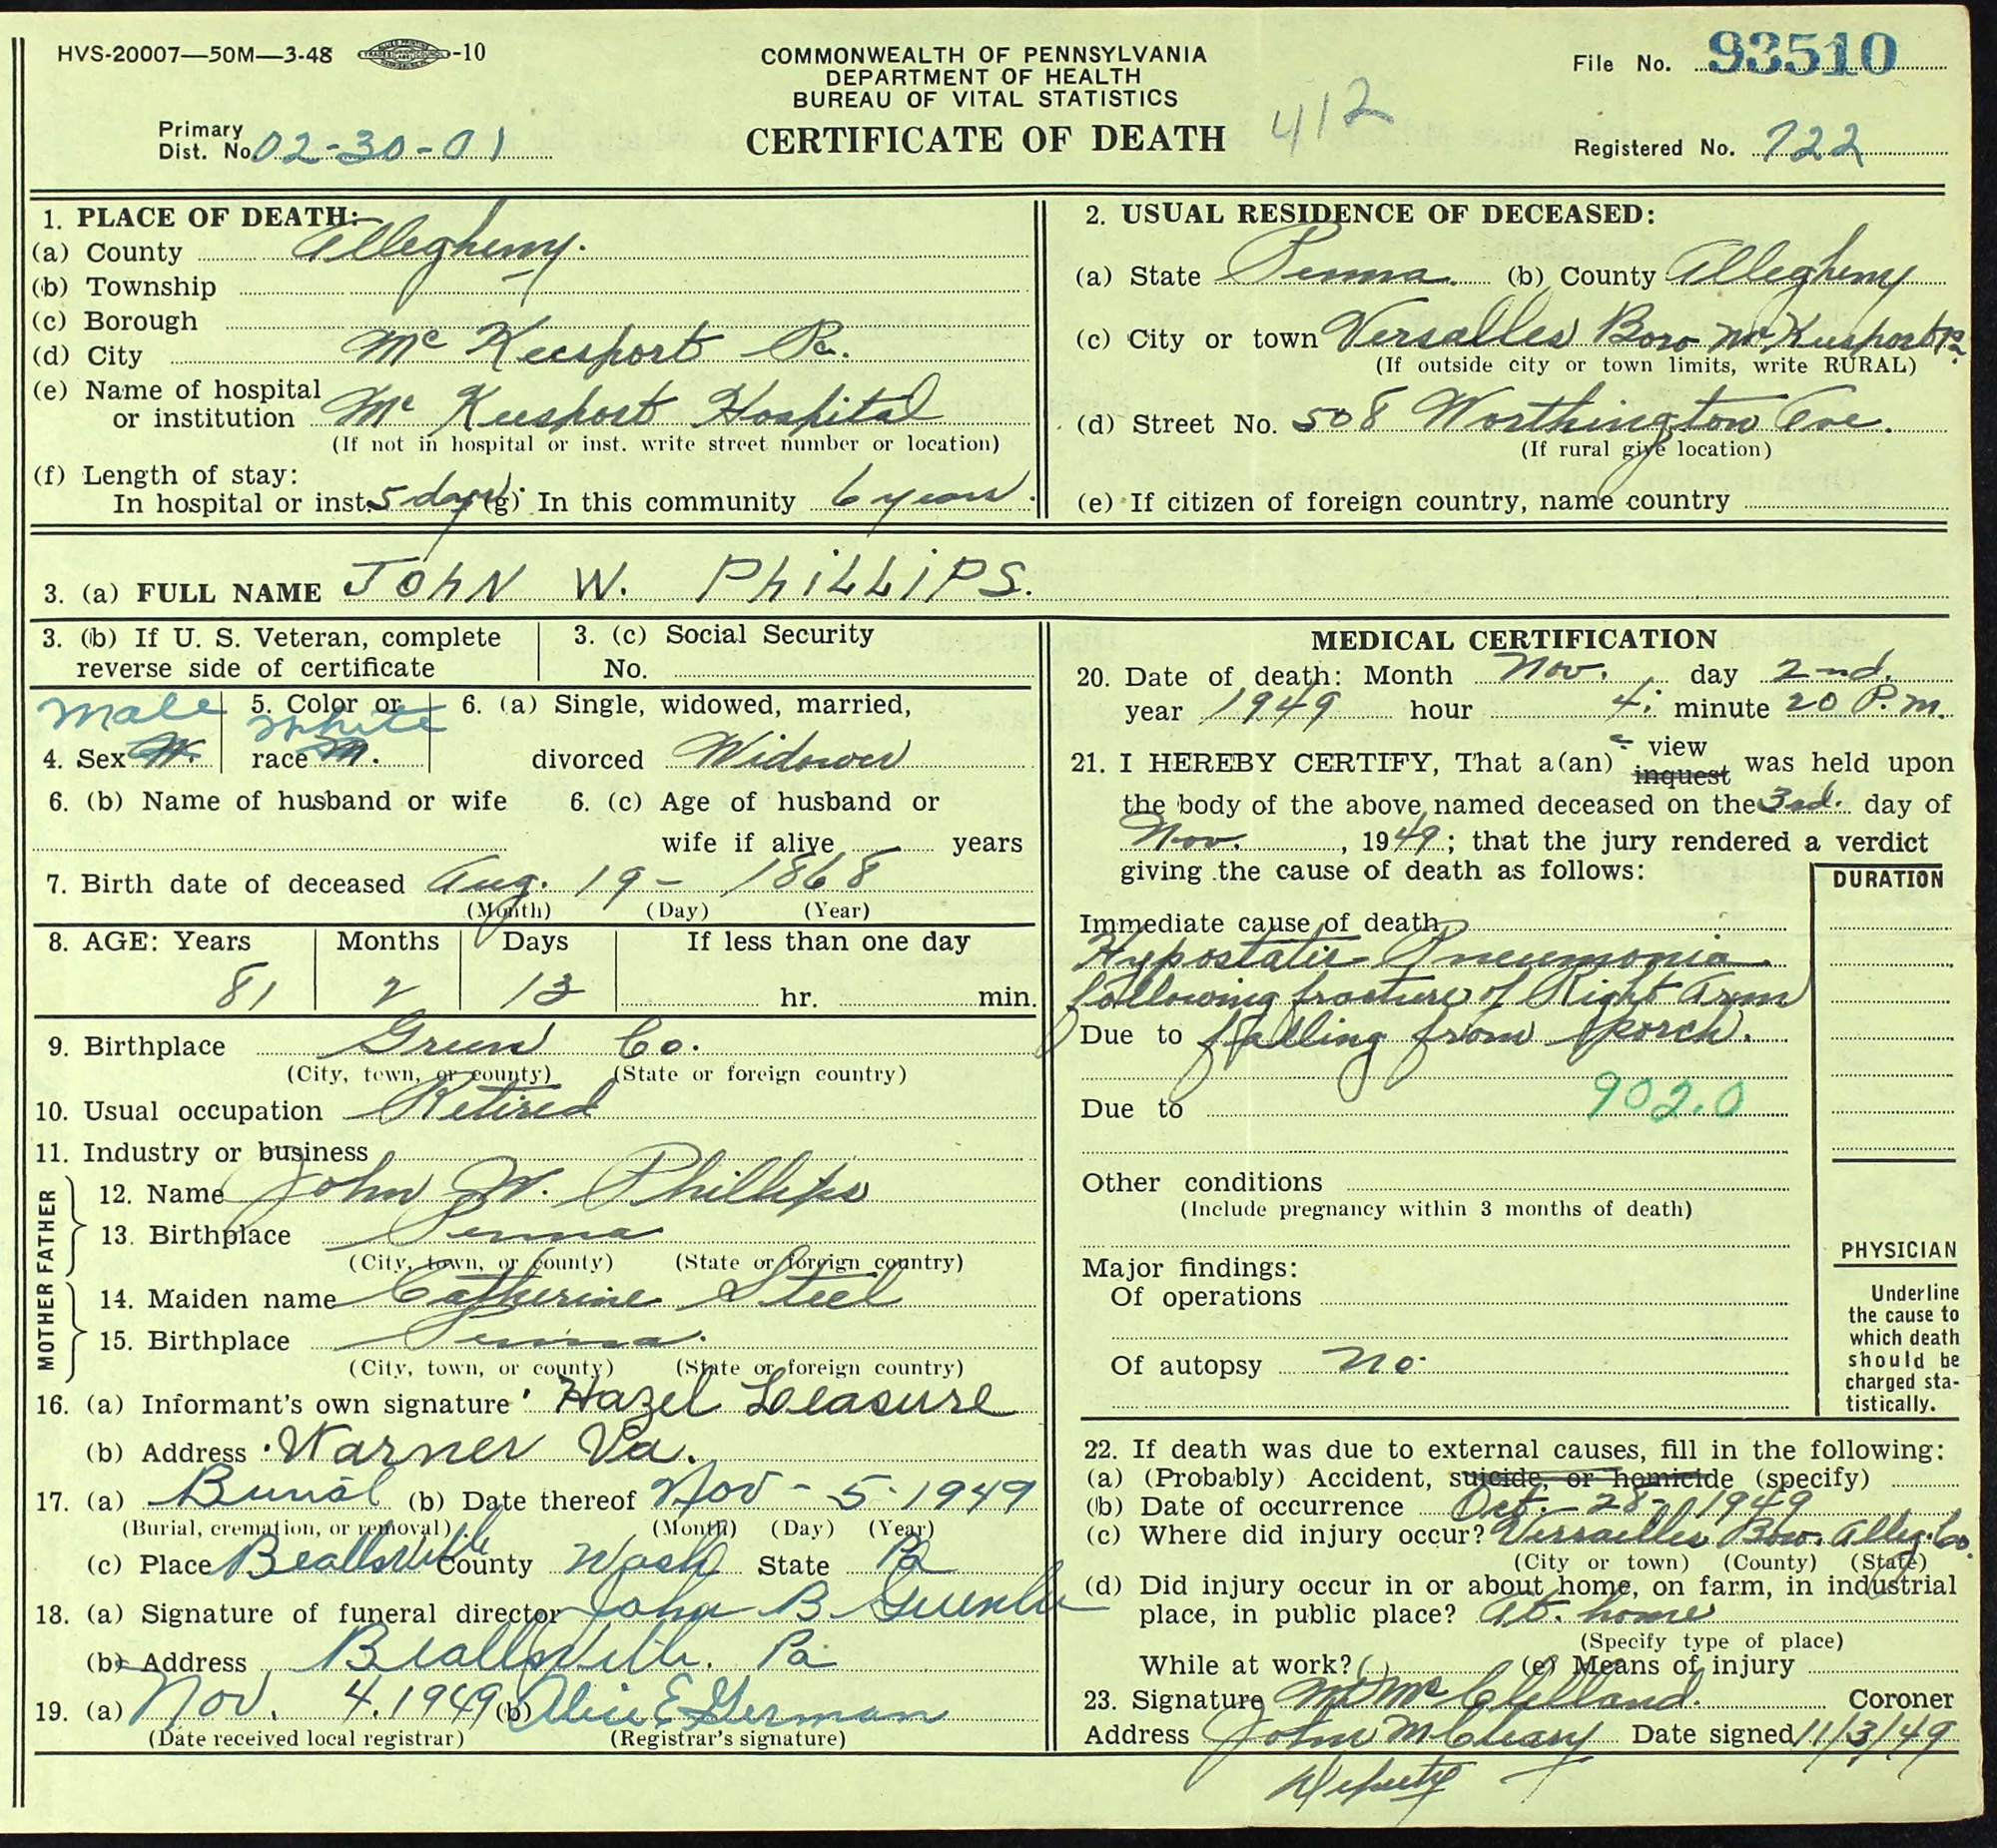 HVS-20007—50M—3-48 -10
COMMONWEALTH OF PENNSYLVANIA
DEPARTMENT OF HEALTH
BUREAU OF VITAL STATISTICS
CERTIFICATE OF DEATH
412
File No. 93510
Primary
Dist. No. 02-30-01
Registered No. 722
1. PLACE OF DEATH:
(a) County Allegheny.
(b) Township
(c) Borough
(d) City Mc Keesport Pa.
(e) Name of hospital
or institution Mc Keesport Hospital
(If not in hospital or inst. write street number or location)
(f) Length of stay:
In hospital or inst. 5 days. (g) In this community 6 years.
2. USUAL RESIDENCE OF DECEASED:
(a) State Penna. (b) County Allegheny
(c) City or town Versalles Boro Mc Keesport Pa.
(If outside city or town limits, write RURAL)
(d) Street No. 508 Worthington Ave.
(If rural give location)
(e) If citizen of foreign country, name country
3. (a) FULL NAME JOhN W. PhiLLiPS.
3. (b) If U. S. Veteran, complete
reverse side of certificate
3. (c) Social Security
No.
Male
White
4. Sex W.
5. Color or
race M.
6. (a) Single, widowed, married,
divorced Widower
6. (b) Name of husband or wife
6. (c) Age of husband or
wife if alive years
7. Birth date of deceased Aug. 19 - 1868
(Month) (Day) (Year)
8. AGE: Years Months Days If less than one day
81 2 13 hr. min.
9. Birthplace Green Co.
(City, town, or county) (State or foreign country)
10. Usual occupation Retired
11. Industry or business
FATHER
12. Name John W. Phillips
13. Birthplace Penna
(City, town, or county) (State or foreign country)
MOTHER
14. Maiden name Catherine Steel
15. Birthplace Penna.
(City, town, or county) (State or foreign country)
16. (a) Informant's own signature Hazel Leasure
(b) Address Warner Va.
17. (a) Burial (b) Date thereof Nov - 5 - 1949
(Burial, cremation, or removal) (Month) (Day) (Year)
(c) Place Beallsville County Wash State Pa
18. (a) Signature of funeral director John B Greenlee
(b) Address Beallsville. Pa
19. (a) Nov. 4. 1949 (b) Alice E German
(Date received local registrar) (Registrar's signature)
MEDICAL CERTIFICATION
20. Date of death: Month Nov. day 2nd.
year 1949 hour 4: minute 20 P.M.
21. I HEREBY CERTIFY, That a(an) view
inquest was held upon
the body of the above named deceased on the 3rd. day of
Nov. , 1949; that the jury rendered a verdict
giving the cause of death as follows:
DURATION
Immediate cause of death
Hypostatic Pneumonia
following fracture of Right Arm
Due to falling from porch.
Due to 902.0
Other conditions
(Include pregnancy within 3 months of death)
Major findings:
Of operations
Of autopsy no.
PHYSICIAN
Underline
the cause to
which death
should be
charged sta-
tistically.
22. If death was due to external causes, fill in the following:
(a) (Probably) Accident, suicide, or homicide (specify)
(b) Date of occurrence Oct. - 28 - 1949
(c) Where did injury occur? Versailles Boro. Alleg. Co.
(City or town) (County) (State)
(d) Did injury occur in or about home, on farm, in industrial
place, in public place? At. home
(Specify type of place)
While at work? ( ) (e) Means of injury
23. Signature Mc Clelland. Coroner
Address John McCleary Date signed 11/3/49
Deputy